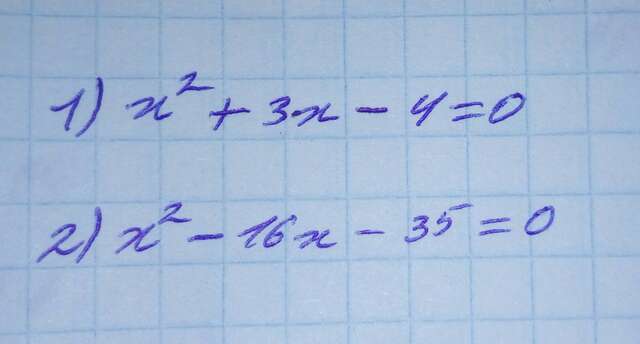 1) x² + 3x - 4 = 0
2) x² - 16x - 35 = 0